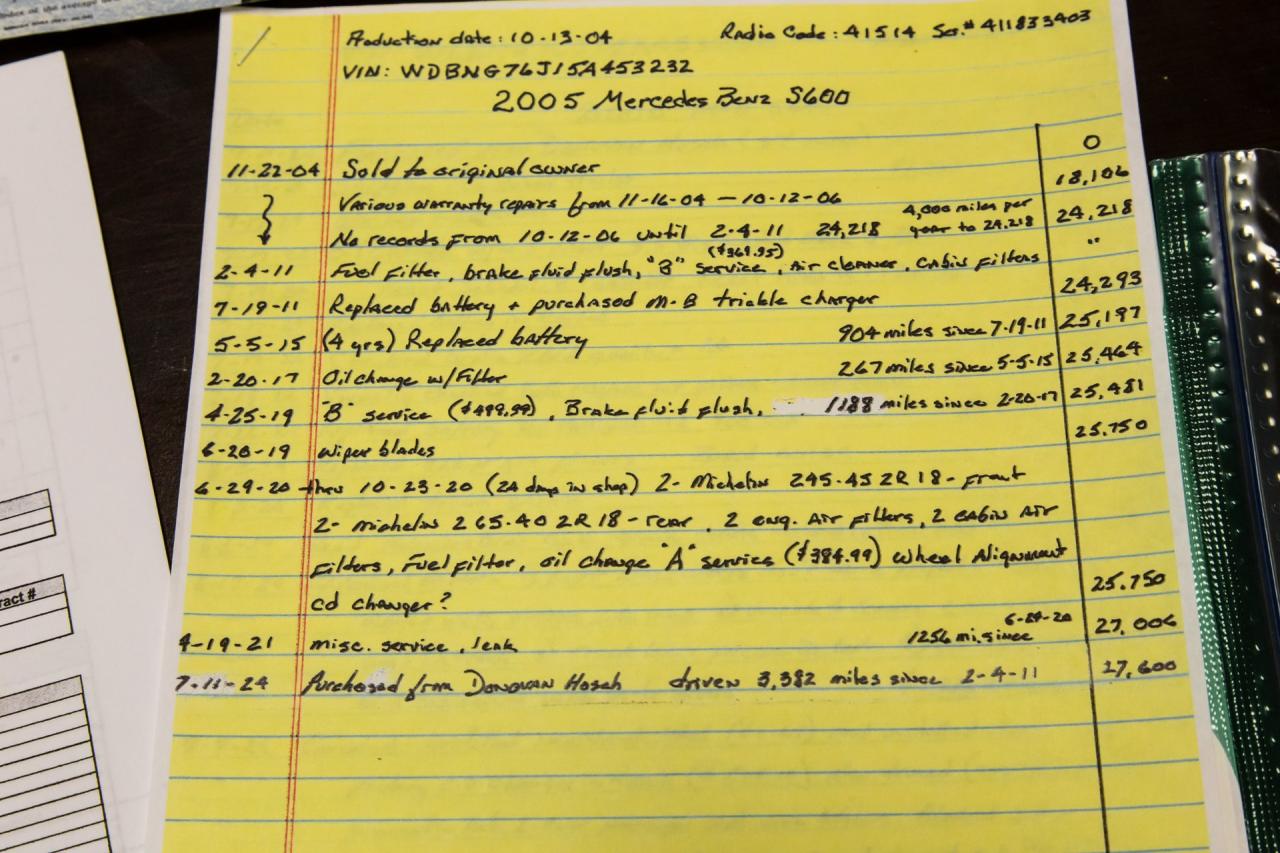 Production date: 10-13-04 Radio Code: 41514 Ser.# 411833403
VIN: WDBNG76J15A453232
2005 Mercedes Benz S600
0
11-22-04 Sold to original owner 18,106
Various warranty repairs from 11-16-04 — 10-12-06 4,000 miles per
No records from 10-12-06 until 2-4-11 24,218 year to 24,218 24,218
($369.95)
2-4-11 Fuel Filter, brake fluid flush, "B" service, Air cleaner, cabin filters "
7-19-11 Replaced battery + purchased M-B trickle charger 24,293
5-5-15 (4 yrs) Replaced battery 904 miles since 7-19-11 25,197
2-20-17 Oil change w/Filter 267 miles since 5-5-15 25,464
4-25-19 "B" service ($499.99), Brake fluid flush, 1188 miles since 2-20-17 25,481
6-20-19 wiper blades 25,750
6-29-20 thru 10-23-20 (24 days in shop) 2- Michelin 245-45 ZR 18 - Front
2- michelin 265-40 ZR 18 - rear, 2 eng. Air filters, 2 cabin Air
filters, Fuel filter, oil change "A" service ($384.99) Wheel Alignment
cd changer? 25,750
4-19-21 misc. service, leak 1256 mi. since 6-29-20 27,006
7-11-24 Purchased from Donovan Hosch driven 3,382 miles since 2-4-11 27,600
ract #